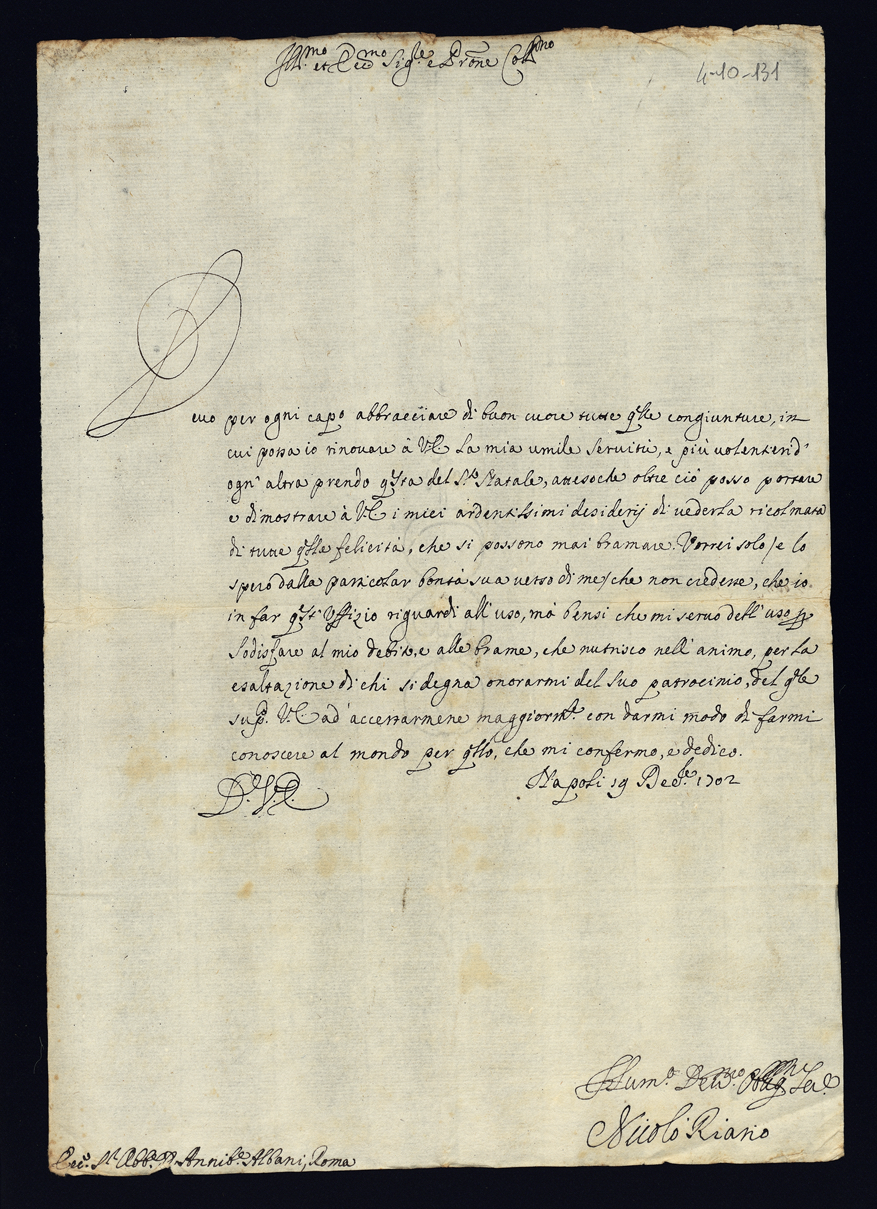 Ill.mo et Ecc.mo Sig.re e Prone Col.mo
4-10-131
Devo per ogni capo abbracciare di buon cuore tutte q.ste congiunture, in
cui possa io rinovare à V.E. la mia umile servitù, e più volentieri d'
ogn' altra prendo q.sta del S.to Natale, attesoche oltre ciò posso portare
e dimostrare à V.E. i miei ardentissimi desiderij di vederla ricolmata
di tutte q.lle felicità, che si possono mai bramare. Vorrei solo /e lo
spero dalla particolar bontà sua verso di me/ che non credesse, che io
in far q.st' Uffizio riguardi all' uso, mà bensi che mi servo dell' uso p
sodisfare al mio debito, e alle brame, che nutrisco nell' animo, per la
esaltazione di chi si degna onorarmi del suo patrocinio, del q.le
sup.co V.E. ad' accertarmene maggiorm.te con darmi modo di farmi
conoscere al mondo per q.llo, che mi confermo, e dedico.
D. V. E. Napoli 19 Dec.re 1702
Hum.o Dev.mo Oblig. Ser.e
Nicolò Riario
Ecc.o S.r Abb.e D. Annib.e Albani, Roma